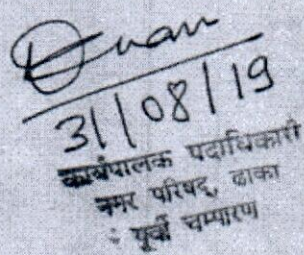 31/08/19
कार्यपालक पदाधिकारी
नगर परिषद्, ढाका
पूर्वी चम्पारण